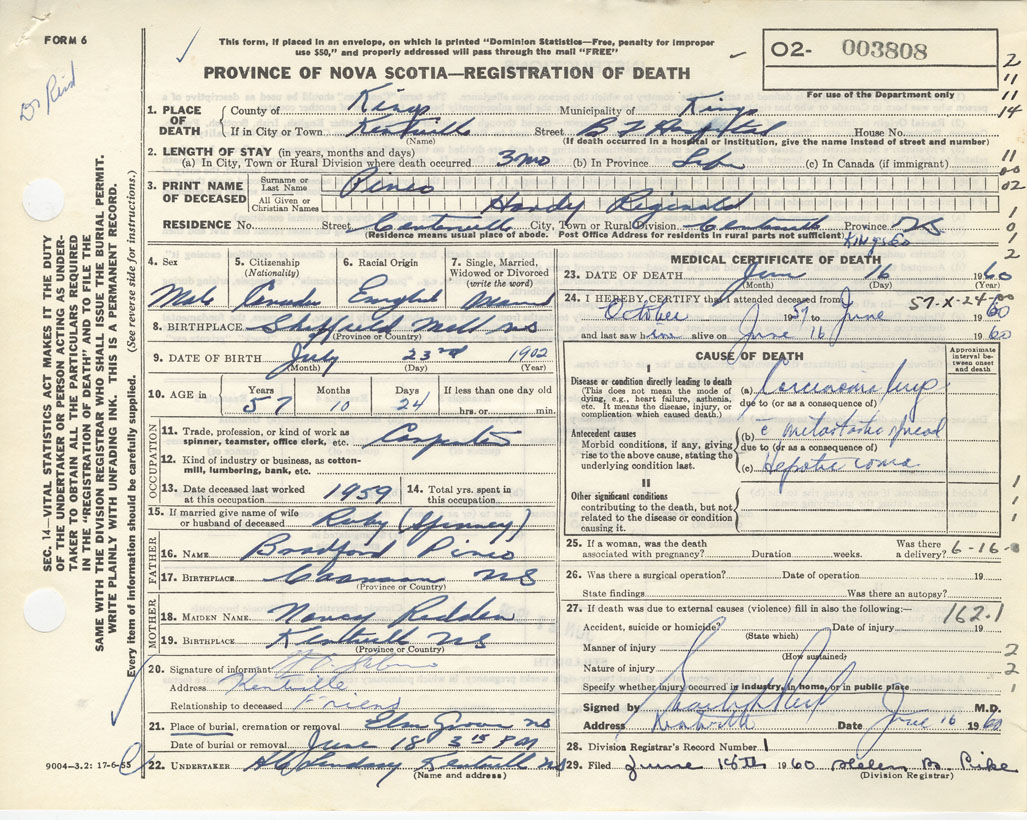 FORM 6
Dr Reid
This form, if placed in an envelope, on which is printed "Dominion Statistics—Free, penalty for improper
use $50," and properly addressed will pass through the mail "FREE"
PROVINCE OF NOVA SCOTIA—REGISTRATION OF DEATH
02- 003808
For use of the Department only
2
11
11
14
1. PLACE OF DEATH
County of Kings Municipality of Kings
If in City or Town Kentville Street B F Hospital House No.
(Name) (If death occurred in a hospital or institution, give the name instead of street and number)
2. LENGTH OF STAY (in years, months and days)
(a) In City, Town or Rural Division where death occurred 3 mo (b) In Province Life (c) In Canada (if immigrant)
11
00
02
3. PRINT NAME OF DECEASED
Surname or Last Name Pineo
All Given or Christian Names Hardy Riginald
RESIDENCE No. Street Centerville City, Town or Rural Division Centerville Province NS
(Residence means usual place of abode. Post Office Address for residents in rural parts not sufficient) Kings Co
1
0
1
2
4. Sex
Male
5. Citizenship
(Nationality)
Canada
6. Racial Origin
English
7. Single, Married,
Widowed or Divorced
(write the word)
8. BIRTHPLACE Sheffield Mill NS
(Province or Country)
9. DATE OF BIRTH July 23rd 1902
(Month) (Day) (Year)
10. AGE in Years 57 Months 10 Days 24 If less than one day old
hrs. or min.
OCCUPATION
11. Trade, profession, or kind of work as
spinner, teamster, office clerk, etc. Carpenter
12. Kind of industry or business, as cotton-
mill, lumbering, bank, etc.
13. Date deceased last worked
at this occupation 1959
14. Total yrs. spent in
this occupation
15. If married give name of wife
or husband of deceased Ruby (Spinney)
FATHER
16. NAME Bradford Pineo
17. BIRTHPLACE NS
(Province or Country)
MOTHER
18. MAIDEN NAME Nancy Redden
19. BIRTHPLACE Kentville NS
(Province or Country)
20. Signature of informant
Address Kentville
Relationship to deceased Friend
21. Place of burial, cremation or removal Elm Grove NS
Date of burial or removal June 18 3 15 PM
22. UNDERTAKER Lindsay Kentville NS
(Name and address)
MEDICAL CERTIFICATE OF DEATH
23. DATE OF DEATH June 16 1960
(Month) (Day) (Year)
24. I HEREBY CERTIFY that I attended deceased from 57-X-24-00
October 1957 to June 1960
and last saw him alive on June 16 1960
CAUSE OF DEATH
Approximate
interval be-
tween onset
and death
I
Disease or condition directly leading to death
(This does not mean the mode of
dying, e.g., heart failure, asthenia,
etc. It means the disease, injury, or
complication which caused death.)
(a) Carcinoma lung
due to (or as a consequence of)
Antecedent causes
Morbid conditions, if any, giving
rise to the above cause, stating the
underlying condition last.
(b) c metastatic spread
due to (or as a consequence of)
(c) Hepatic coma
II
Other significant conditions
contributing to the death, but not
related to the disease or condition
causing it.
1
1
1
25. If a woman, was the death
associated with pregnancy? Duration weeks. Was there
a delivery? 6-16-
26. Was there a surgical operation? Date of operation 19
State findings Was there an autopsy?
27. If death was due to external causes (violence) fill in also the following:— 162.1
Accident, suicide or homicide? Date of injury 19
(State which)
Manner of injury 2
(How sustained)
Nature of injury 2
Specify whether injury occurred in industry, in home, or in public place 1
Signed by Reid M.D.
Address Kentville Date June 16 1960
28. Division Registrar's Record Number 1
29. Filed June 18th 1960 Helen B. Pike
(Division Registrar)
SEC. 14—VITAL STATISTICS ACT MAKES IT THE DUTY
OF THE UNDERTAKER OR PERSON ACTING AS UNDER-
TAKER TO OBTAIN ALL THE PARTICULARS REQUIRED
IN THE "REGISTRATION OF DEATH" AND TO FILE THE
SAME WITH THE DIVISION REGISTRAR WHO SHALL ISSUE THE BURIAL PERMIT.
WRITE PLAINLY WITH UNFADING INK. THIS IS A PERMANENT RECORD.
Every item of information should be carefully supplied. (See reverse side for instructions.)
9004-3.2: 17-6-55